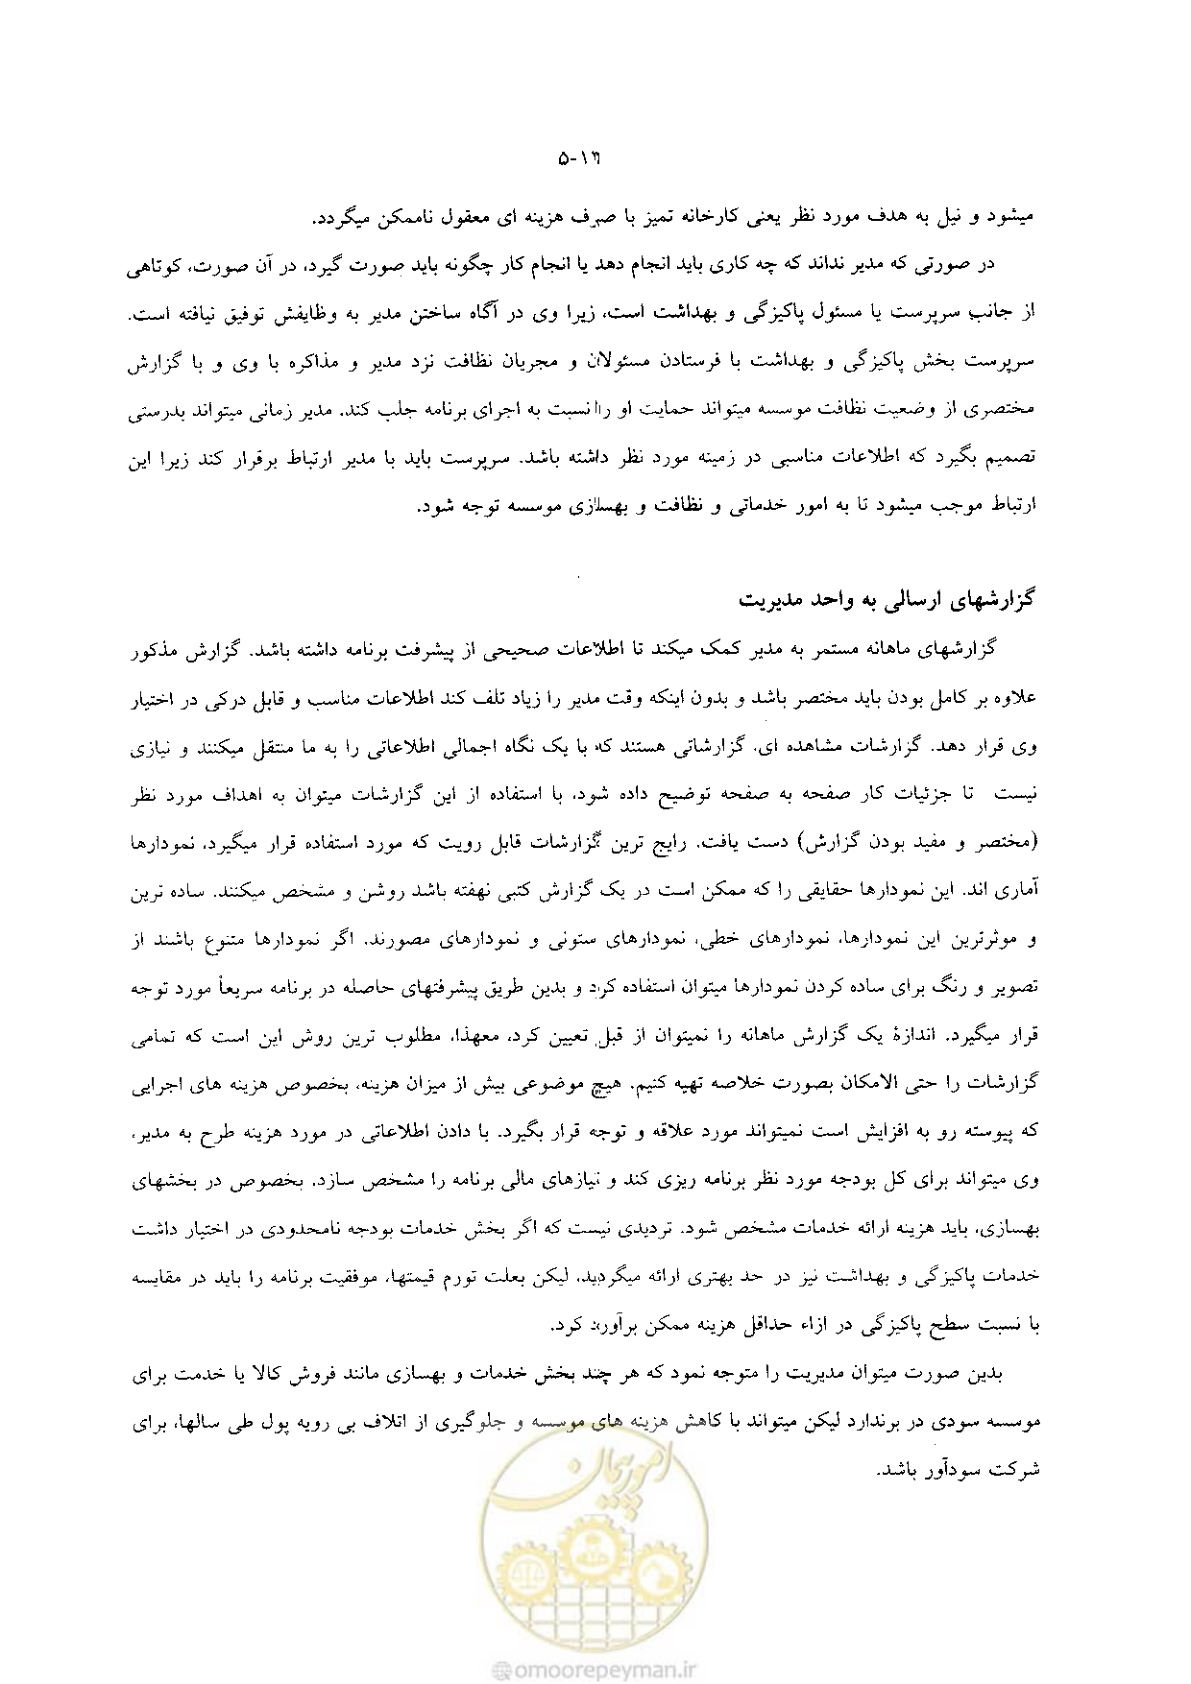 ۵-۱۲
میشود و نیل به هدف مورد نظر یعنی کارخانه تمیز با صرف هزینه ای معقول ناممکن میگردد.
در صورتی که مدیر نداند که چه کاری باید انجام دهد یا انجام کار چگونه باید صورت گیرد، در آن صورت، کوتاهی
از جانب سرپرست یا مسئول پاکیزگی و بهداشت است، زیرا وی در آگاه ساختن مدیر به وظایفش توفیق نیافته است.
سرپرست بخش پاکیزگی و بهداشت با فرستادن مسئولان و مجریان نظافت نزد مدیر و مذاکره با وی و با گزارش
مختصری از وضعیت نظافت موسسه میتواند حمایت او را نسبت به اجرای برنامه جلب کند. مدیر زمانی میتواند بدرستی
تصمیم بگیرد که اطلاعات مناسبی در زمینه مورد نظر داشته باشد. سرپرست باید با مدیر ارتباط برقرار کند زیرا این
ارتباط موجب میشود تا به امور خدماتی و نظافت و بهسازی موسسه توجه شود.
گزارشهای ارسالی به واحد مدیریت
گزارشهای ماهانه مستمر به مدیر کمک میکند تا اطلاعات صحیحی از پیشرفت برنامه داشته باشد. گزارش مذکور
علاوه بر کامل بودن باید مختصر باشد و بدون اینکه وقت مدیر را زیاد تلف کند اطلاعات مناسب و قابل درکی در اختیار
وی قرار دهد. گزارشات مشاهده ای، گزارشاتی هستند که با یک نگاه اجمالی اطلاعاتی را به ما منتقل میکنند و نیازی
نیست تا جزئیات کار صفحه به صفحه توضیح داده شود، با استفاده از این گزارشات میتوان به اهداف مورد نظر
(مختصر و مفید بودن گزارش) دست یافت. رایج ترین گزارشات قابل رویت که مورد استفاده قرار میگیرد، نمودارها
آماری اند. این نمودارها حقایقی را که ممکن است در یک گزارش کتبی نهفته باشد روشن و مشخص میکنند. ساده ترین
و موثرترین این نمودارها، نمودارهای خطی، نمودارهای ستونی و نمودارهای مصورند. اگر نمودارها متنوع باشند از
تصویر و رنگ برای ساده کردن نمودارها میتوان استفاده کرد و بدین طریق پیشرفتهای حاصله در برنامه سریعاً مورد توجه
قرار میگیرد. اندازۀ یک گزارش ماهانه را نمیتوان از قبل تعیین کرد، معهذا، مطلوب ترین روش این است که تمامی
گزارشات را حتی الامکان بصورت خلاصه تهیه کنیم. هیچ موضوعی بیش از میزان هزینه، بخصوص هزینه های اجرایی
که پیوسته رو به افزایش است نمیتواند مورد علاقه و توجه قرار بگیرد. با دادن اطلاعاتی در مورد هزینه طرح به مدیر،
وی میتواند برای کل بودجه مورد نظر برنامه ریزی کند و نیازهای مالی برنامه را مشخص سازد. بخصوص در بخشهای
بهسازی، باید هزینه ارائه خدمات مشخص شود. تردیدی نیست که اگر بخش خدمات بودجه نامحدودی در اختیار داشت
خدمات پاکیزگی و بهداشت نیز در حد بهتری ارائه میگردید، لیکن بعلت تورم قیمتها، موفقیت برنامه را باید در مقایسه
با نسبت سطح پاکیزگی در ازاء حداقل هزینه ممکن برآورد کرد.
بدین صورت میتوان مدیریت را متوجه نمود که هر چند بخش خدمات و بهسازی مانند فروش کالا یا خدمت برای
موسسه سودی در برندارد لیکن میتواند با کاهش هزینه های موسسه و جلوگیری از اتلاف بی رویه پول طی سالها، برای
شرکت سودآور باشد.
امور پیمان
@omoorepeyman.ir